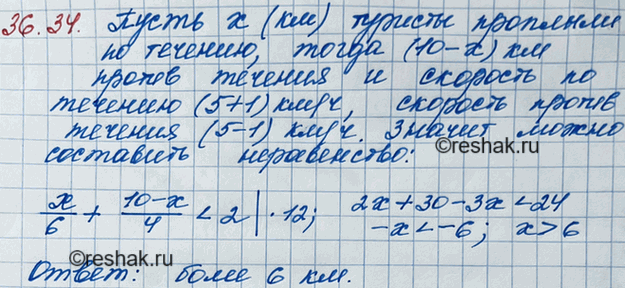 36.34. Пусть x (км) туристы проплыли
по течению, тогда (10-x) км
против течения и скорость по
течению (5+1) км/ч, скорость против
течения (5-1) км/ч. Значит можно
составить неравенство:
©reshak.ru
x/6 + 10-x/4 < 2 | ·12; 2x+30-3x<24
-x<-6; x>6
©reshak.ru
Ответ: более 6 км.